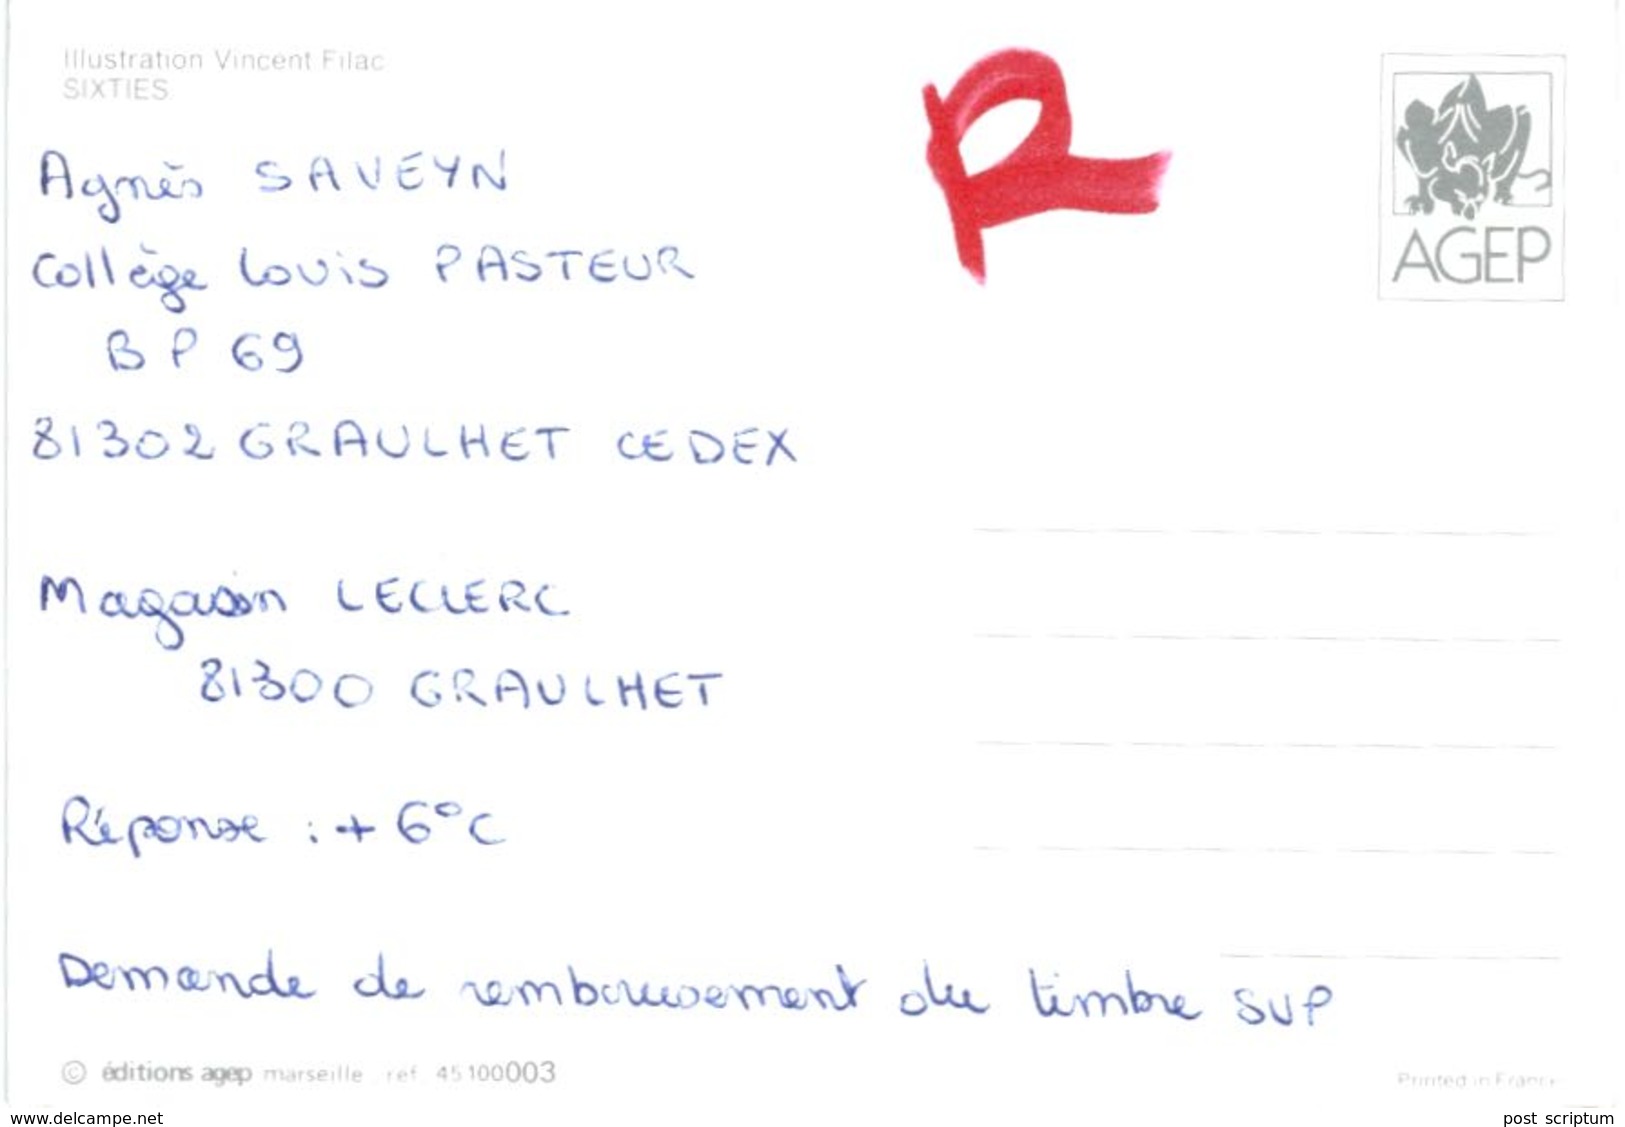 Illustration Vincent Filac
SIXTIES
R
AGEP
Agnès SAVEYN
Collège Louis PASTEUR
BP 69
81302 GRAULHET CEDEX
Magasin LECLERC
81300 GRAULHET
Réponse : + 6°C
Demande de remboursement du timbre SVP
© éditions agep marseille ref. 45100003
Printed in France
www.delcampe.net
post scriptum